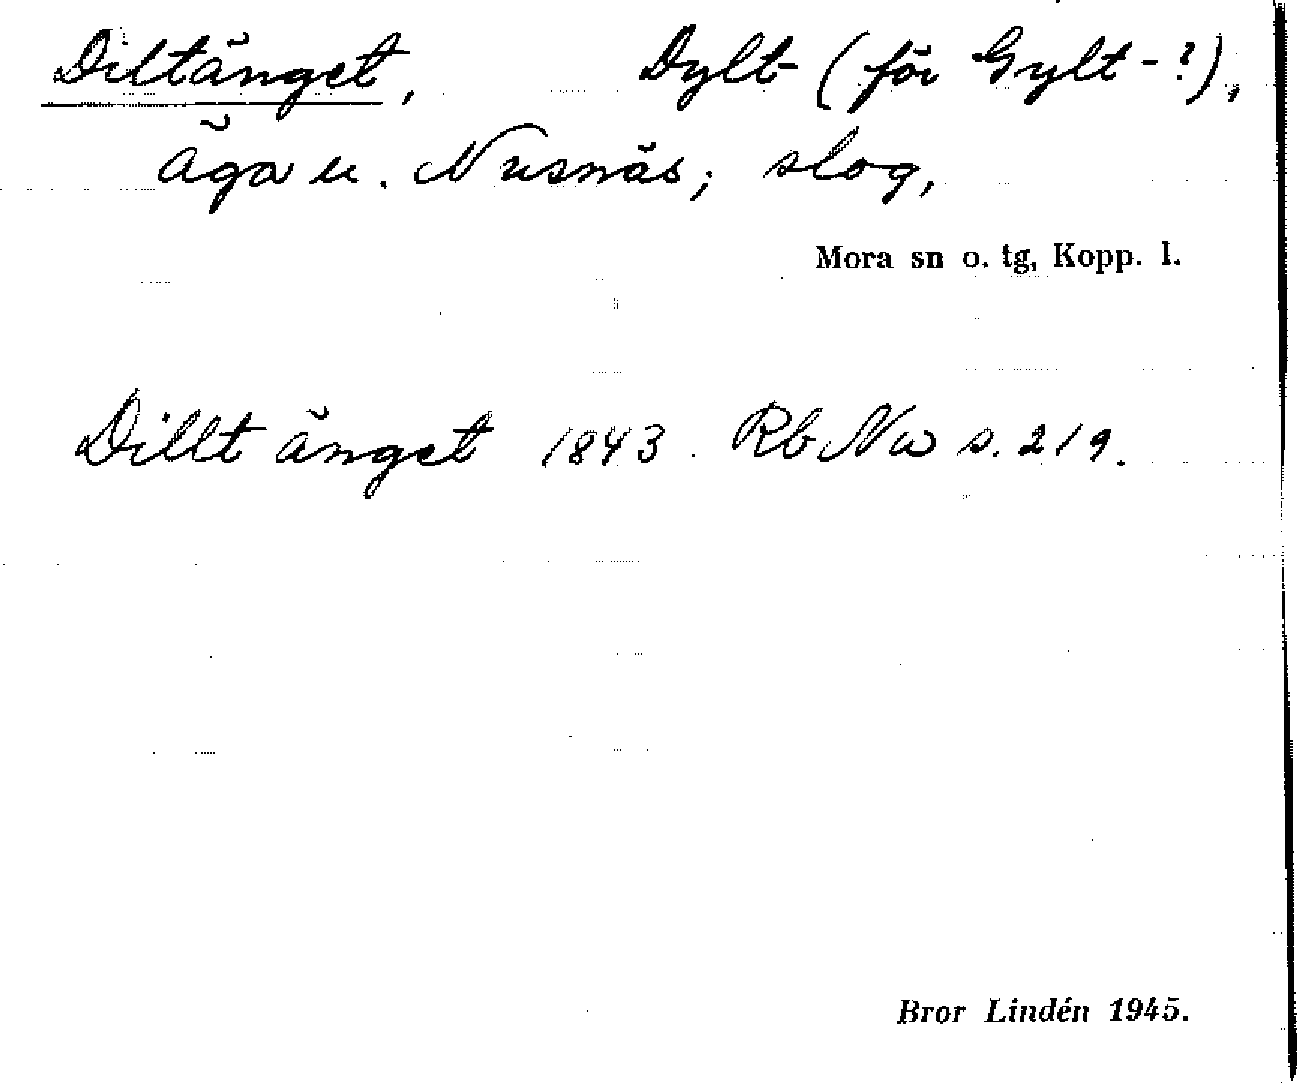 Diltänget, Dylt- (för Gylt-?),
äga u. Nusnäs; slog,
Mora sn o. tg, Kopp. l.
Dillt änget 1843. Rb Nw s. 219.
Bror Lindén 1945.